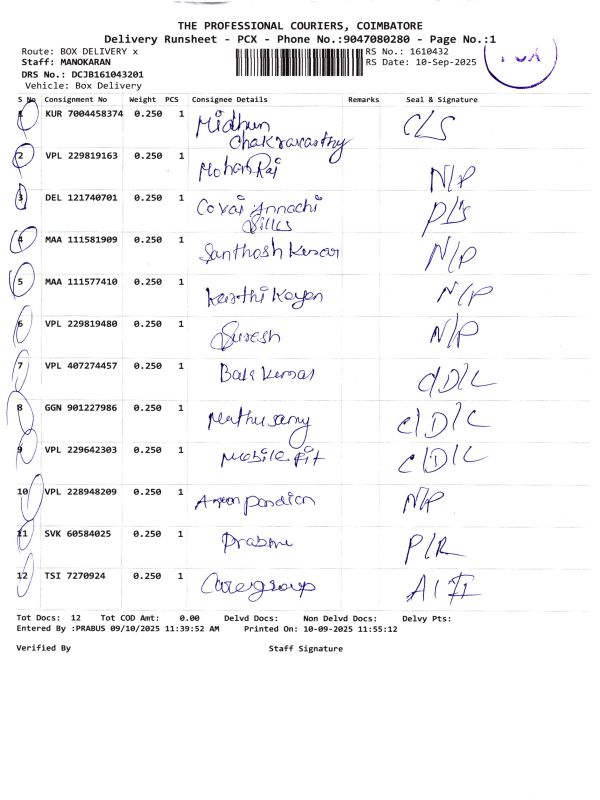 THE PROFESSIONAL COURIERS, COIMBATORE
Delivery Runsheet - PCX - Phone No.:9047080280 - Page No.:1
Route: BOX DELIVERY x
RS No.: 1610432
Staff: MANOKARAN
RS Date: 10-Sep-2025
DRS No.: DCJB161043201
Vehicle: Box Delivery
S No Consignment No Weight PCS Consignee Details Remarks Seal & Signature
1 KUR 7004458374 0.250 1 Midhun C/LS
Chakravarthy
2 VPL 229819163 0.250 1 Mohan Raj N/P
3 DEL 121740701 0.250 1 Covai Annachi
Sillls
4 MAA 111581909 0.250 1 Santhosh Kumar N/P
5 MAA 111577410 0.250 1 Karthikeyan N/P
6 VPL 229819480 0.250 1 Suresh N/P
7 VPL 407274457 0.250 1 Bala Kumar C/D/L
8 GGN 901227986 0.250 1 Muthusamy C/D/C
9 VPL 229642303 0.250 1 Mobile fit C/D/C
10 VPL 228948209 0.250 1 pandian N/P
11 SVK 60584025 0.250 1 Prabhu P/R
12 TSI 7270924 0.250 1 Caregroup
Tot Docs: 12 Tot COD Amt: 0.00 Delvd Docs: Non Delvd Docs: Delvy Pts:
Entered By :PRABUS 09/10/2025 11:39:52 AM Printed On: 10-09-2025 11:55:12
Verified By Staff Signature